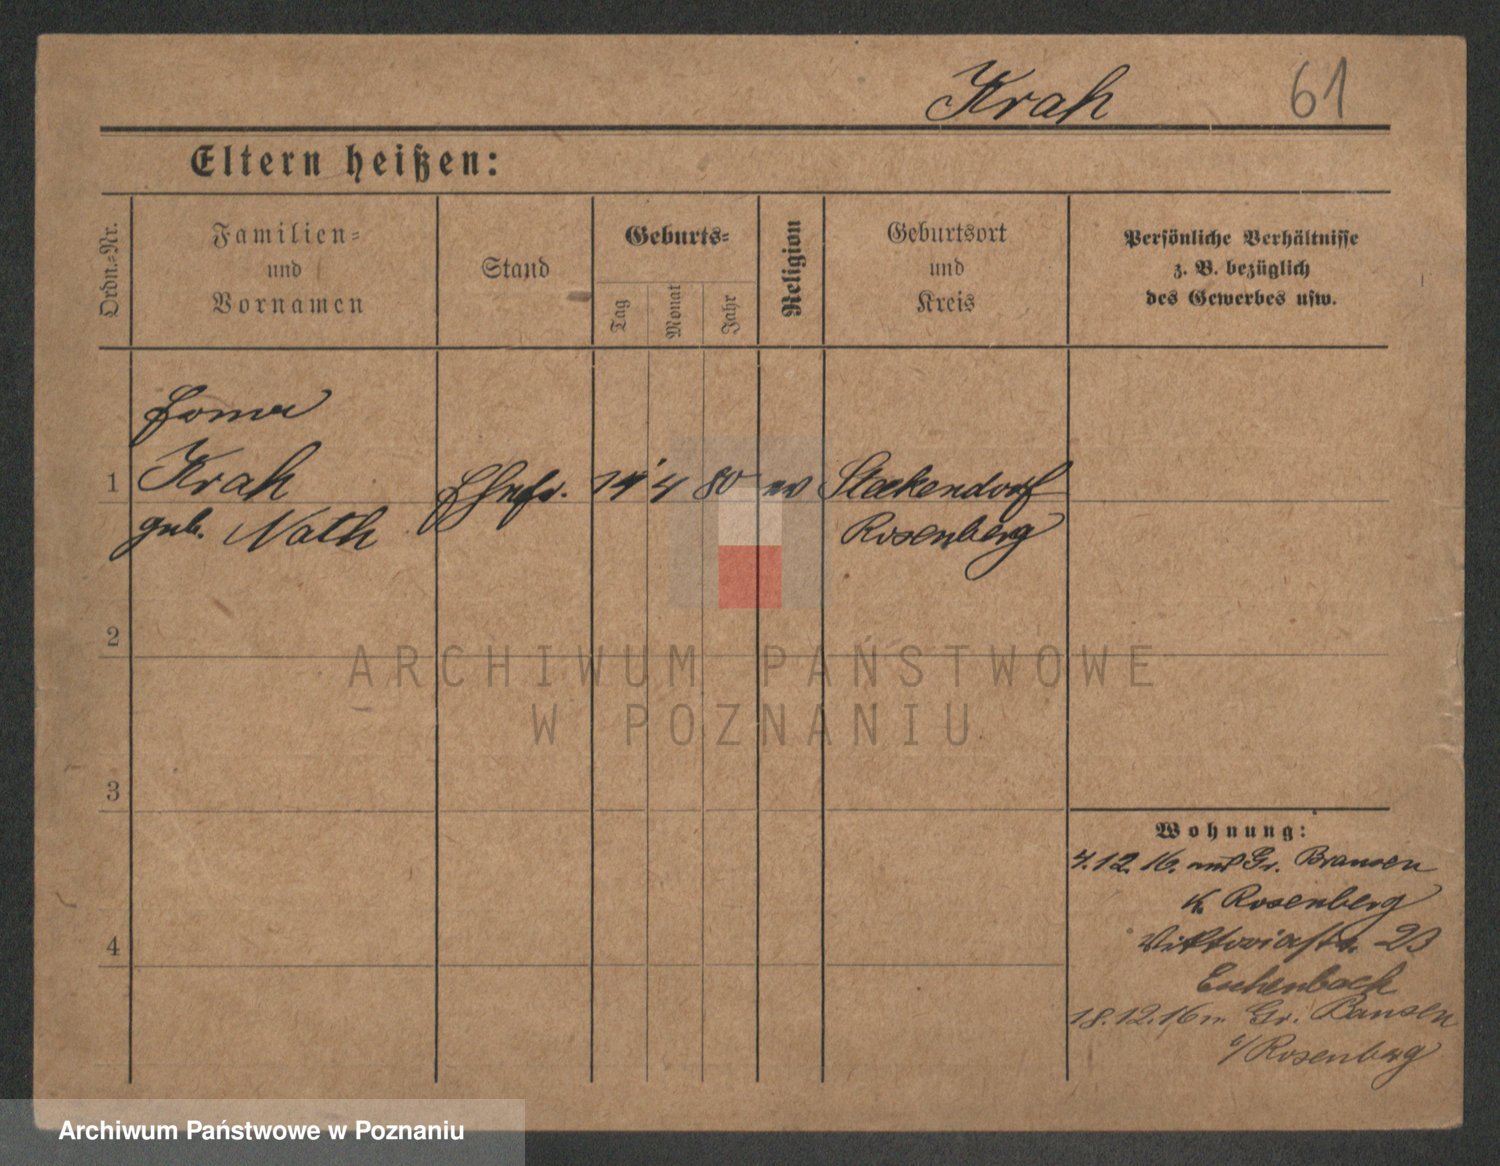 Krah 61
Eltern heißen:
Ordn.-Nr.
Familien-
und
Vornamen
Stand
Geburts-
Tag
Monat
Jahr
Religion
Geburtsort
und
Kreis
Persönliche Verhältnisse
z. B. bezüglich
des Gewerbes usw.
1 Krah Ehefr. 14 4 80 Stockendorf
geb. Nath Rosenberg
2
3
4
Wohnung:
4.12.16. Gr.
K. Rosenberg
Viktoriastr. 23
Eschenbach
18.12.16 n. Gr. Bansen
/Rosenberg
ARCHIWUM PAŃSTWOWE
W POZNANIU
Archiwum Państwowe w Poznaniu